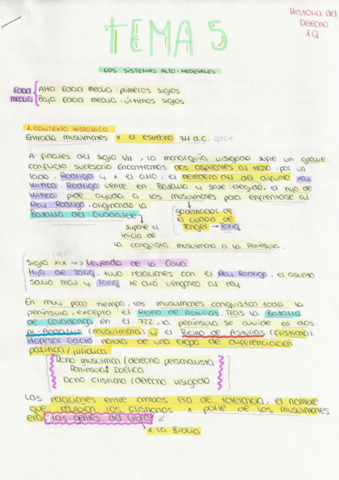 Historia del
Derecho
1Q
TEMA 5
LOS SISTEMAS ALTO-MEDIEVALES
Edad Alta Edad Media: primeros siglos
Media Baja Edad Media: últimos siglos
1. CONTEXTO HISTÓRICO
Entrada musulmanes x el estrecho 711 d.C.
A finales del siglo VII, la monarquía visigoda sufre un grave
conflicto sucesorio. Encontramos dos aspirantes al trono, por un
lado, Rodrigo y x el otro, el heredero del del último rey
Witiza. Rodrigo vence en batalla y sale elegido, el hijo de
Witiza pide ayuda a los musulmanes para enfrentarse al
Rey Rodrigo, originando la
Batalla del Guadalete
gobernador de
la ciudad de
Tánger → Tariq
supone el
inicio de
la conquista musulmana a la Península.
Siglo IX → Leyenda de la Cava
Hija de Tariq, tuvo relaciones con el Rey Rodrigo, el asunto
salió mal y Tariq le dio venganza al rey.
En muy poco tiempo, los musulmanes conquistan toda la
península, excepto el Reino de Asturias. Tras la Batalla
de Covadonga en el 722, la península se divide en dos
Al-Andalus (musulmana) y el Reino de Asturias (cristiano)
Alfonso García habla de una etapa de diferenciación
política/jurídica
Dcho musulmán (derecho personalista)
Península Ibérica
Dcho cristiano (derecho visigodo)
Las relaciones entre ambos era de tolerancia, el nombre
que recibían los cristianos x parte de los musulmanes
era "las gentes del libro"
x la Biblia